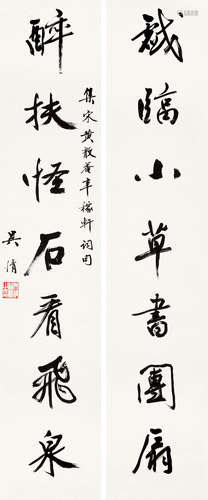 戲臨小草書團扇
醉扶怪石看飛泉
集宋黄散庵辛稼軒詞句
吴淯